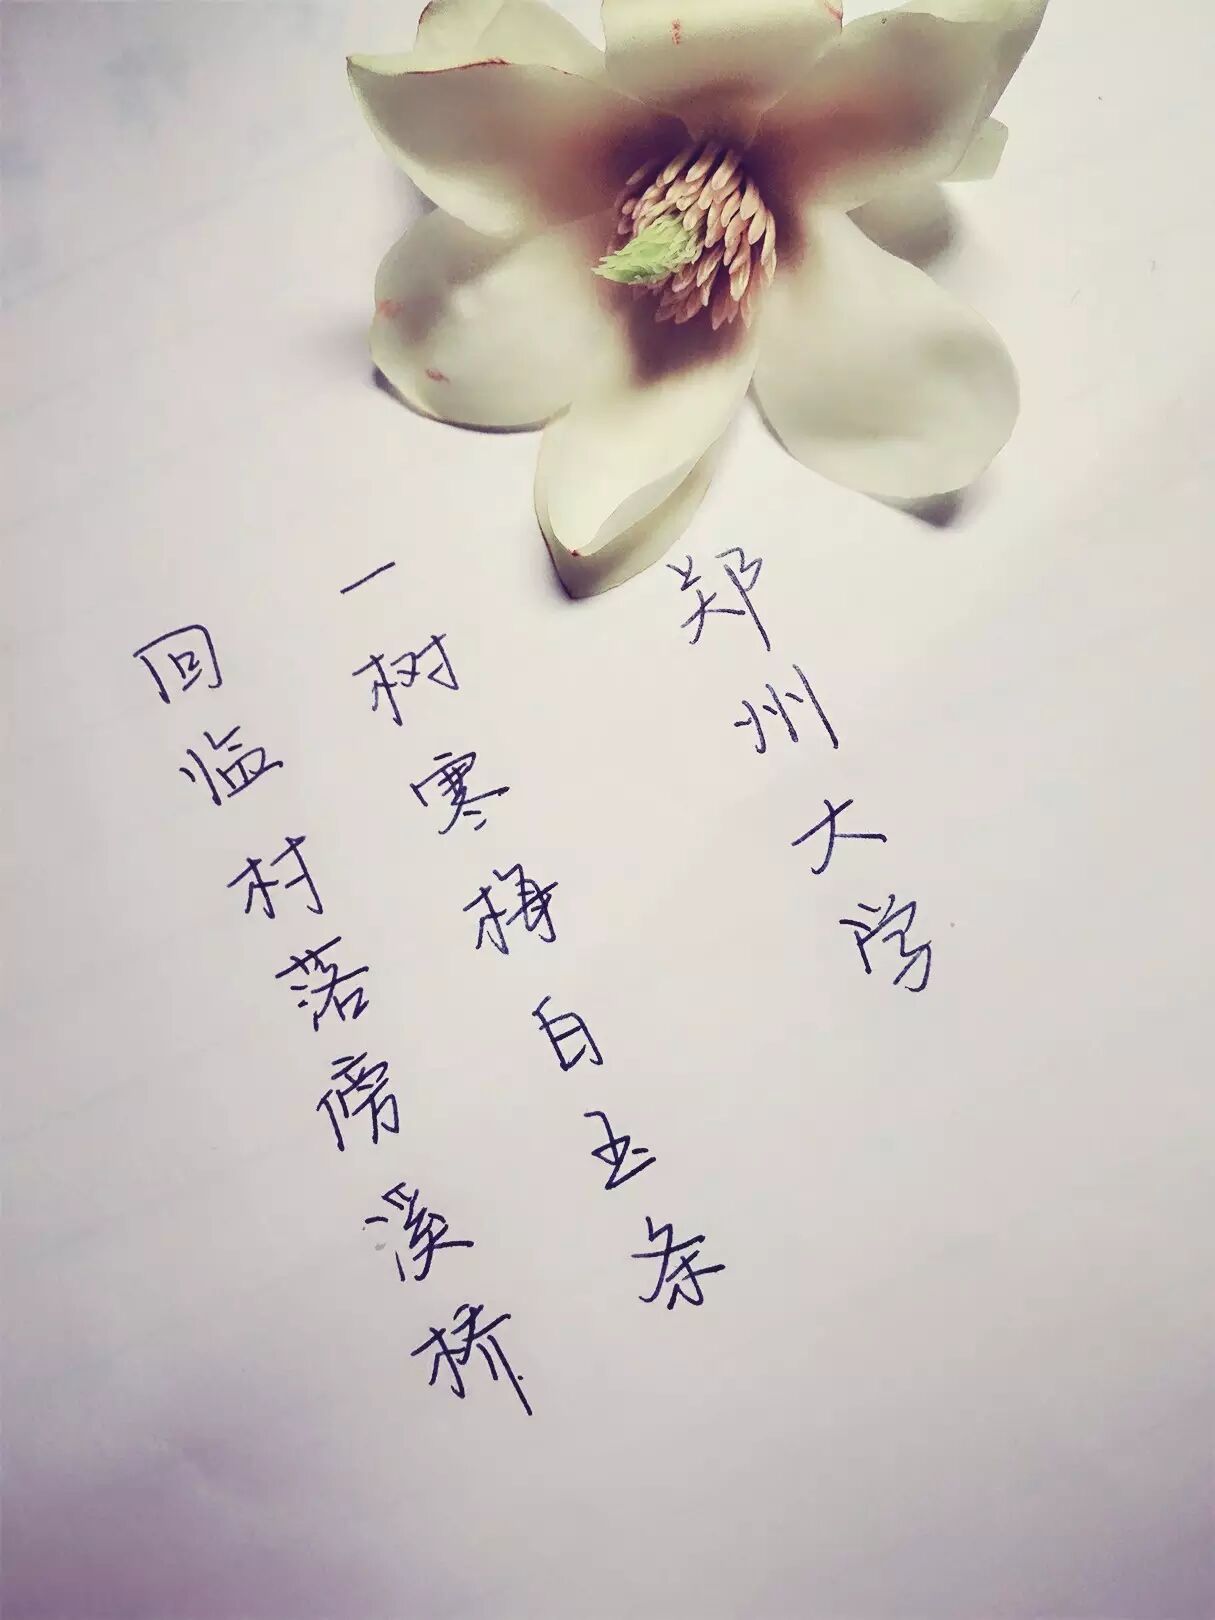 郑州大学
一树寒梅白玉条
回临村落傍溪桥